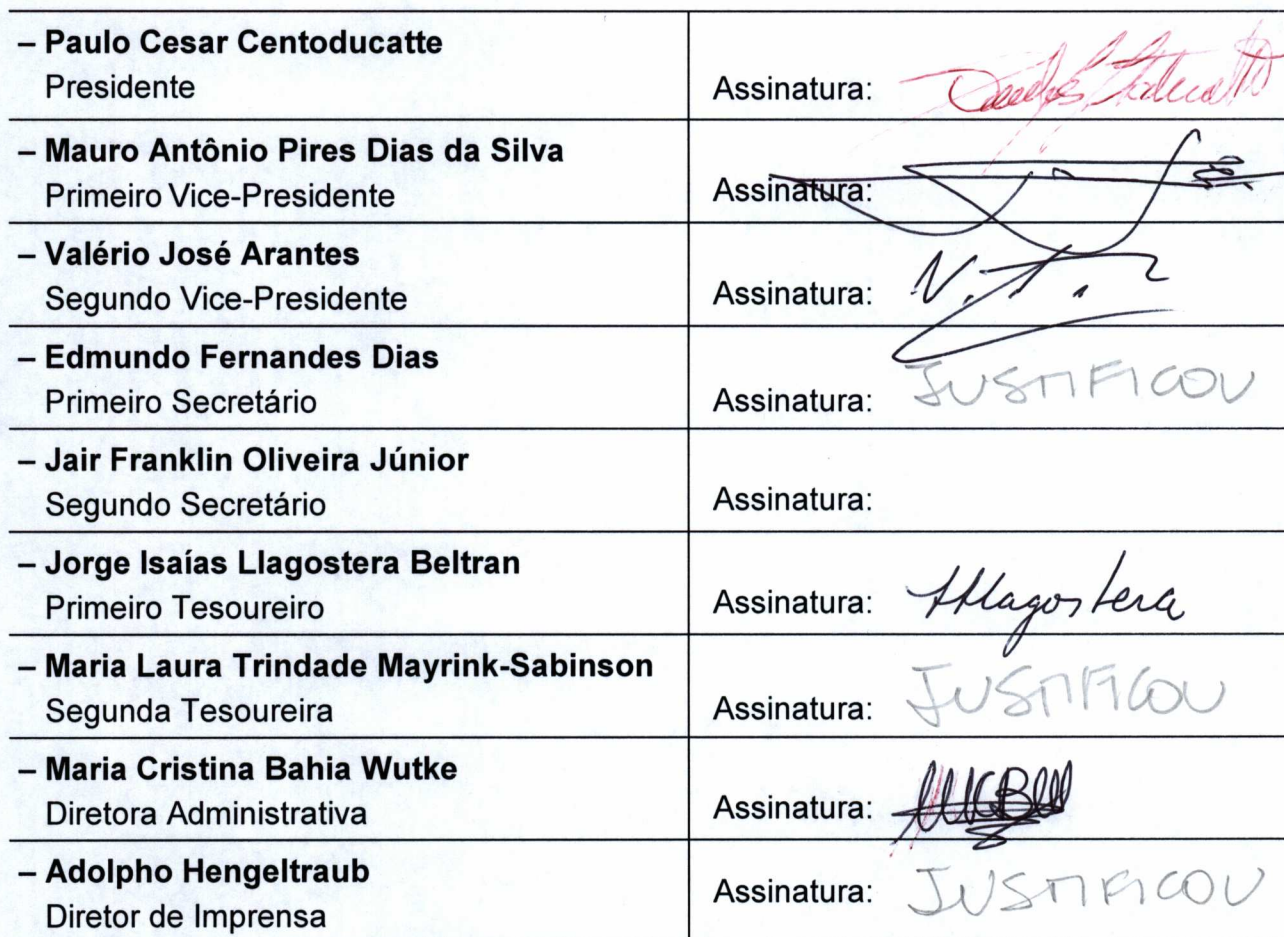 – Paulo Cesar Centoducatte
Presidente
Assinatura:
– Mauro Antônio Pires Dias da Silva
Primeiro Vice-Presidente
Assinatura:
– Valério José Arantes
Segundo Vice-Presidente
Assinatura:
– Edmundo Fernandes Dias
Primeiro Secretário
Assinatura: JUSTIFICOU
– Jair Franklin Oliveira Júnior
Segundo Secretário
Assinatura:
– Jorge Isaías Llagostera Beltran
Primeiro Tesoureiro
Assinatura: Llagostera
– Maria Laura Trindade Mayrink-Sabinson
Segunda Tesoureira
Assinatura: JUSTIFICOU
– Maria Cristina Bahia Wutke
Diretora Administrativa
Assinatura:
– Adolpho Hengeltraub
Diretor de Imprensa
Assinatura: JUSTIFICOU